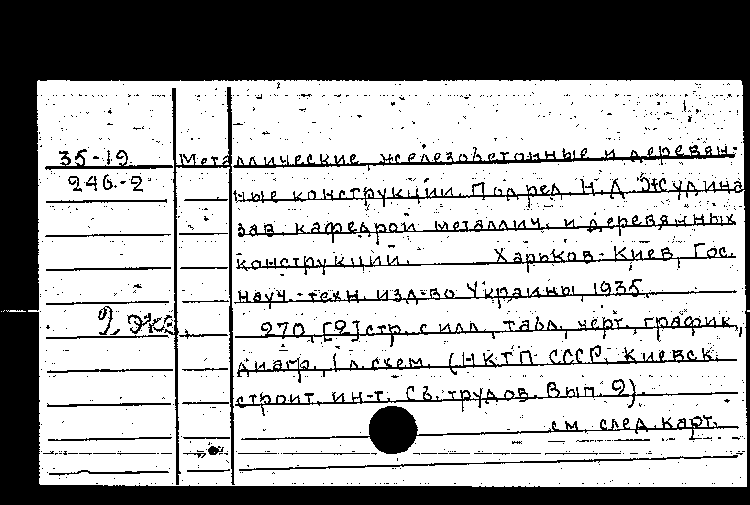 35-19 Металлические, железобетонные и деревян-
246-2 ные конструкции. Под ред. Н. Д. Жудина
зав. кафедрой металлич. и деревянных
конструкций. Харьков-Киев, Гос.
науч.-техн. изд-во Украины, 1935.
2 экз. 270, [2] стр. с илл., табл., черт., график.,
диагр., 1 л. схем. (НКТП СССР. Киевск.
строит. ин-т. Сб. трудов. Вып. 2).
см. след. карт.